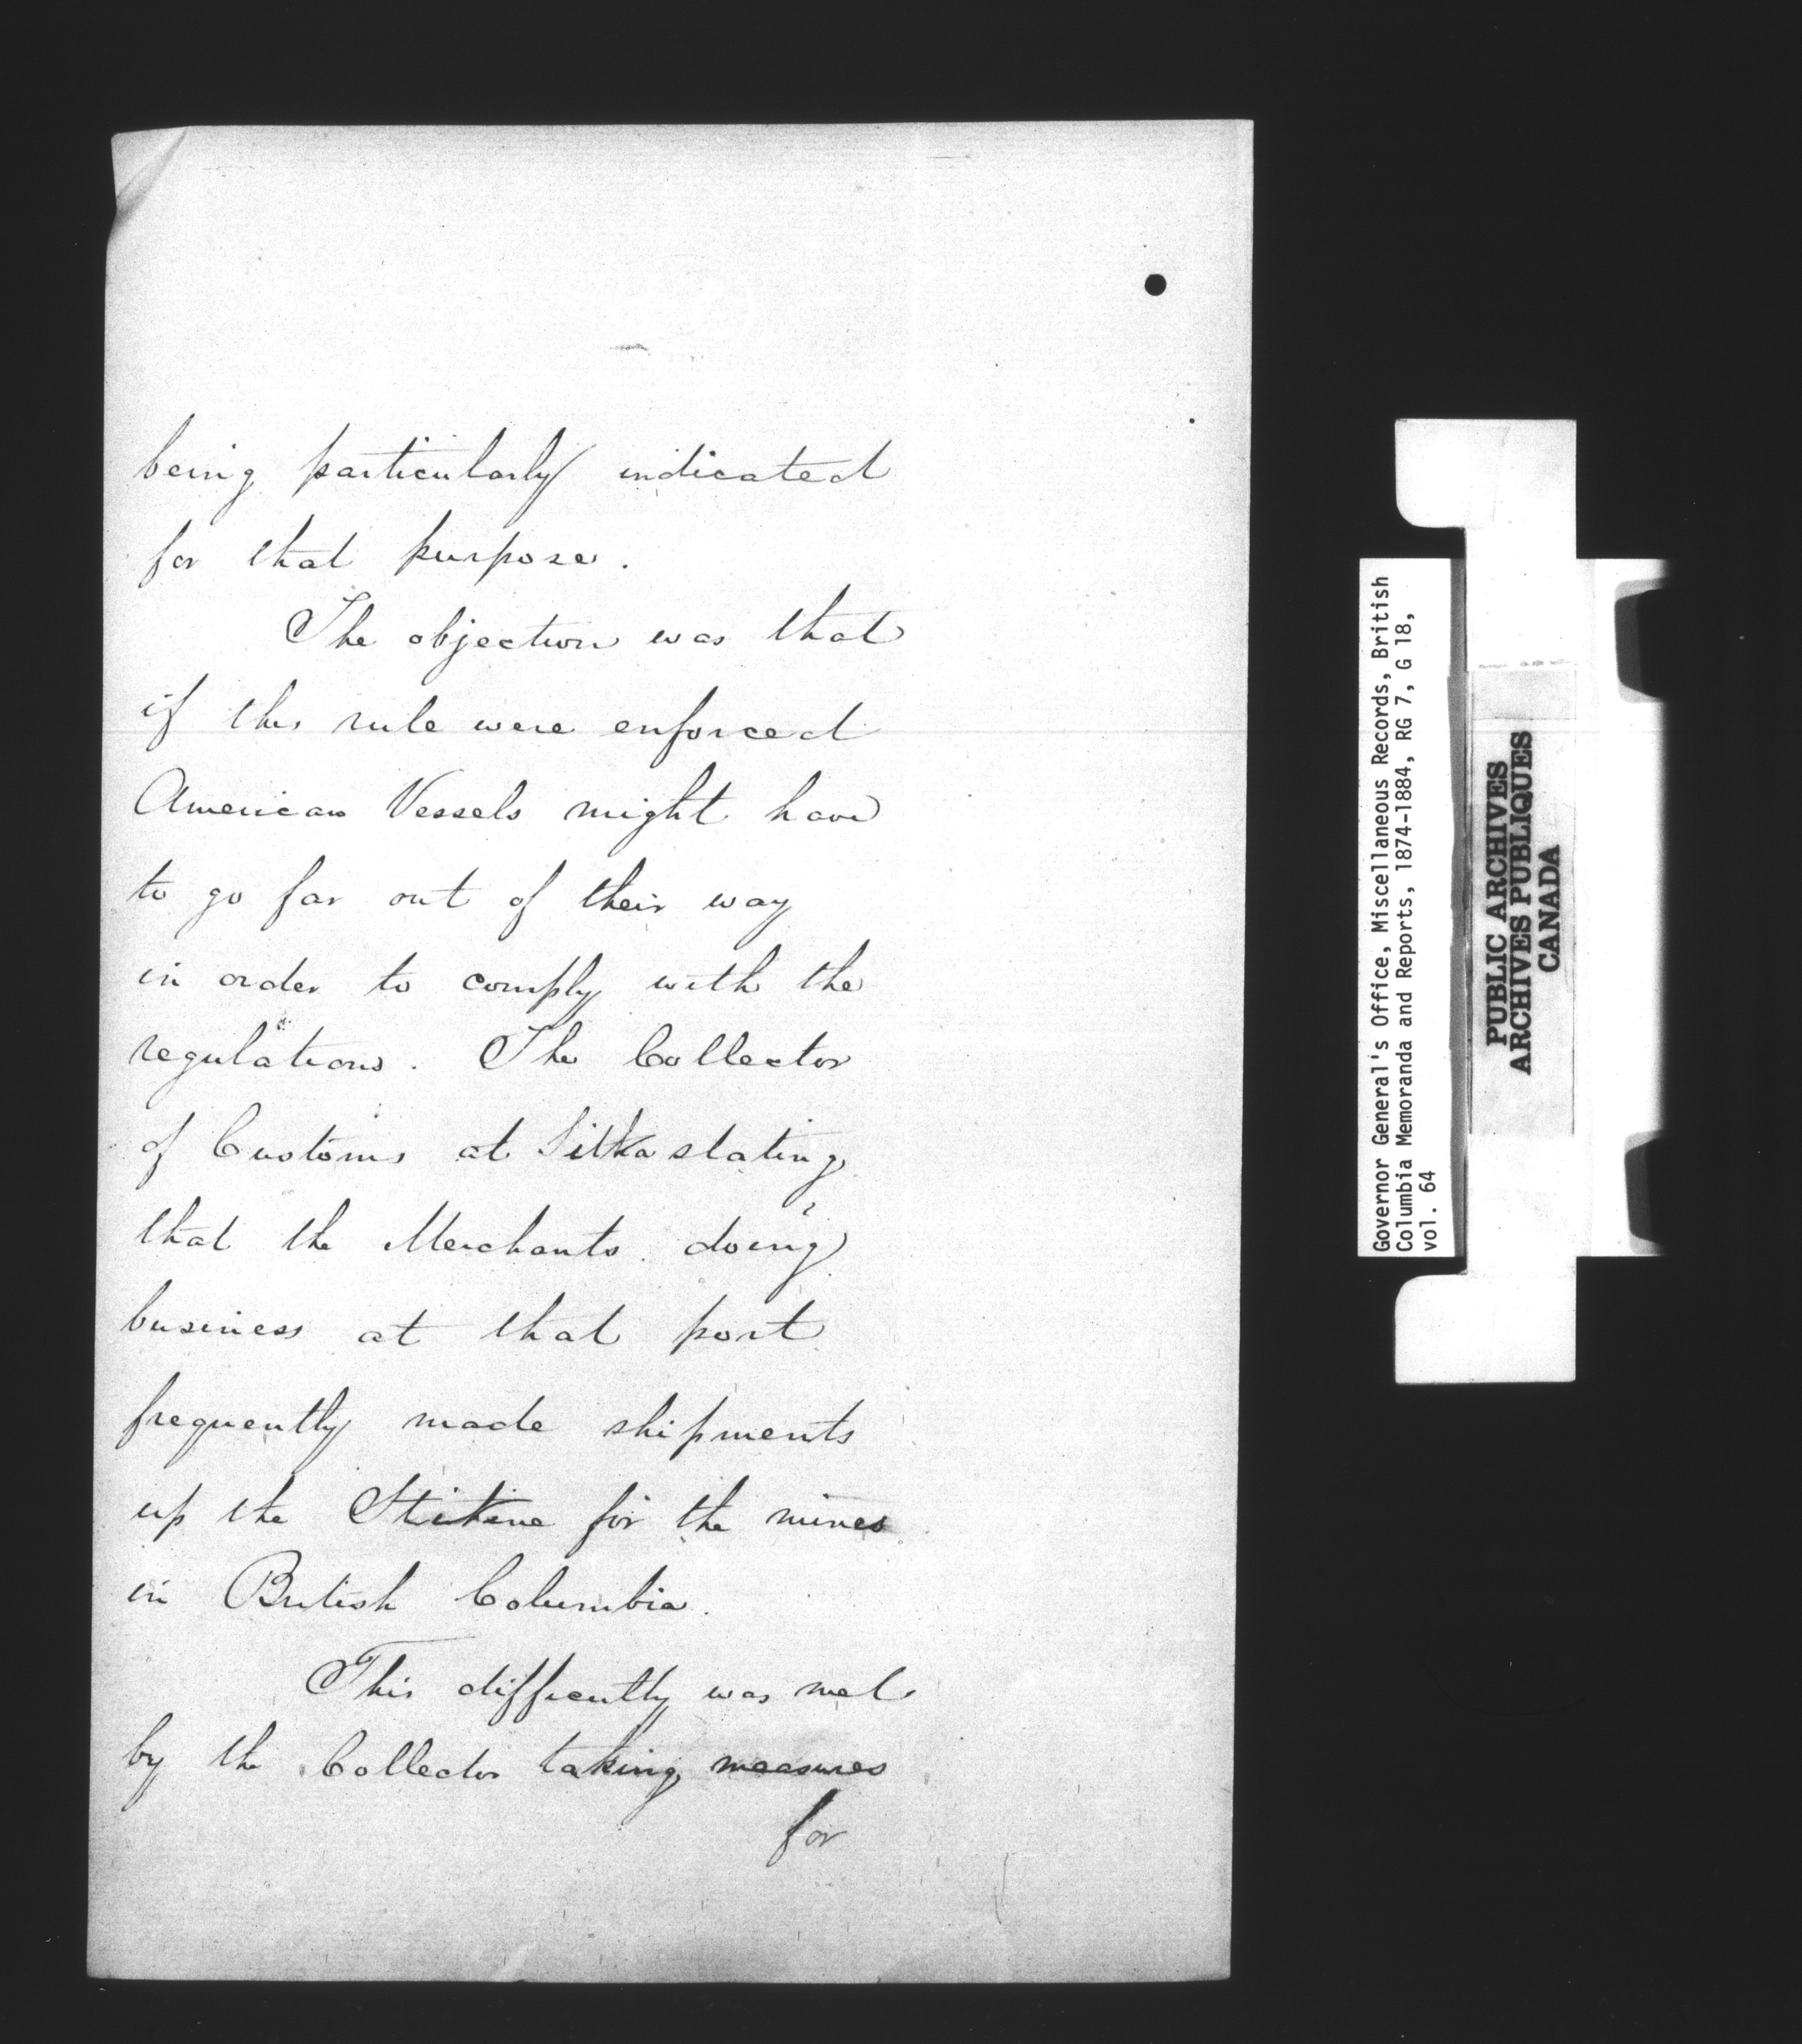 being particularly indicated
for that purpose.
The objection was that
if this rule were enforced
American Vessels might have
to go far out of their way
in order to comply with the
regulations. The Collector
of Customs at Sitka stating
that the Merchants doing
business at that port
frequently made shipments
up the Stikine for the mines
in British Columbia.
This difficulty was met
by the Collector taking measures
for
Governor General's Office, Miscellaneous Records, British
Columbia Memoranda and Reports, 1874-1884, RG 7, G 18,
vol. 64
PUBLIC ARCHIVES
ARCHIVES PUBLIQUES
CANADA